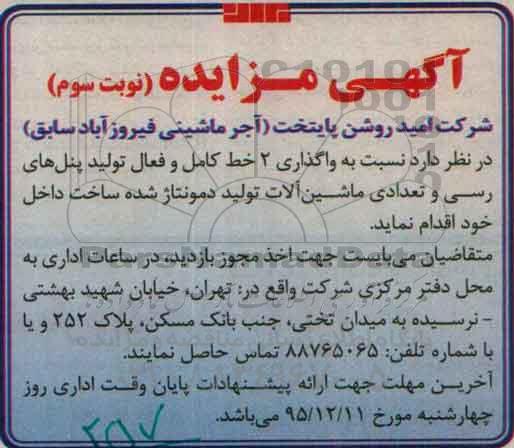 آگهی مزایده (نوبت سوم)
شرکت امید روشن پایتخت (آجر ماشینی فیروزآباد سابق)
در نظر دارد نسبت به واگذاری ۲ خط کامل و فعال تولید پنل‌های
رسی و تعدادی ماشین‌آلات تولید دمونتاژ شده ساخت داخل
خود اقدام نماید.
متقاضیان می‌بایست جهت اخذ مجوز بازدید، در ساعات اداری به
محل دفتر مرکزی شرکت واقع در: تهران، خیابان شهید بهشتی
- نرسیده به میدان تختی، جنب بانک مسکن، پلاک ۲۵۲ و یا
با شماره تلفن: ۸۸۷۶۵۰۶۵ تماس حاصل نمایند.
آخرین مهلت جهت ارائه پیشنهادات پایان وقت اداری روز
چهارشنبه مورخ ۹۵/۱۲/۱۱ می‌باشد.